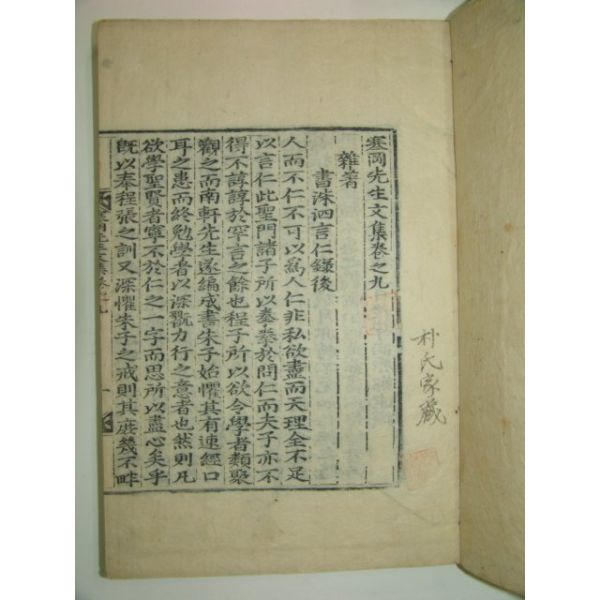 朴氏家藏
寒岡先生文集卷之九
雜著
書洙泗言仁錄後
人而不仁不可以爲人仁非私欲盡而天理全不足
以言仁此聖門諸子所以奏拳於問仁而夫子亦不
得不諄諄於罕言之餘也程子所以欲令學者類聚
觀之而南軒先生遂編成書朱子始懼其有速經口
耳之患而終勉學者以深翫力行之意者也然則凡
欲學聖賢者寧不於仁之一字而思所以盡心矣乎
旣以奉程張之訓又深懼朱子之戒則其庶幾不畔